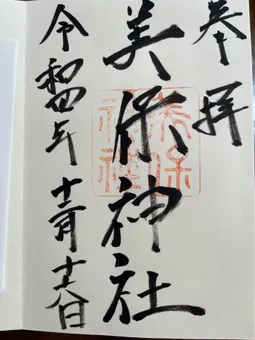 奉拝
美保神社
令和四年十二月十六日
美保神社